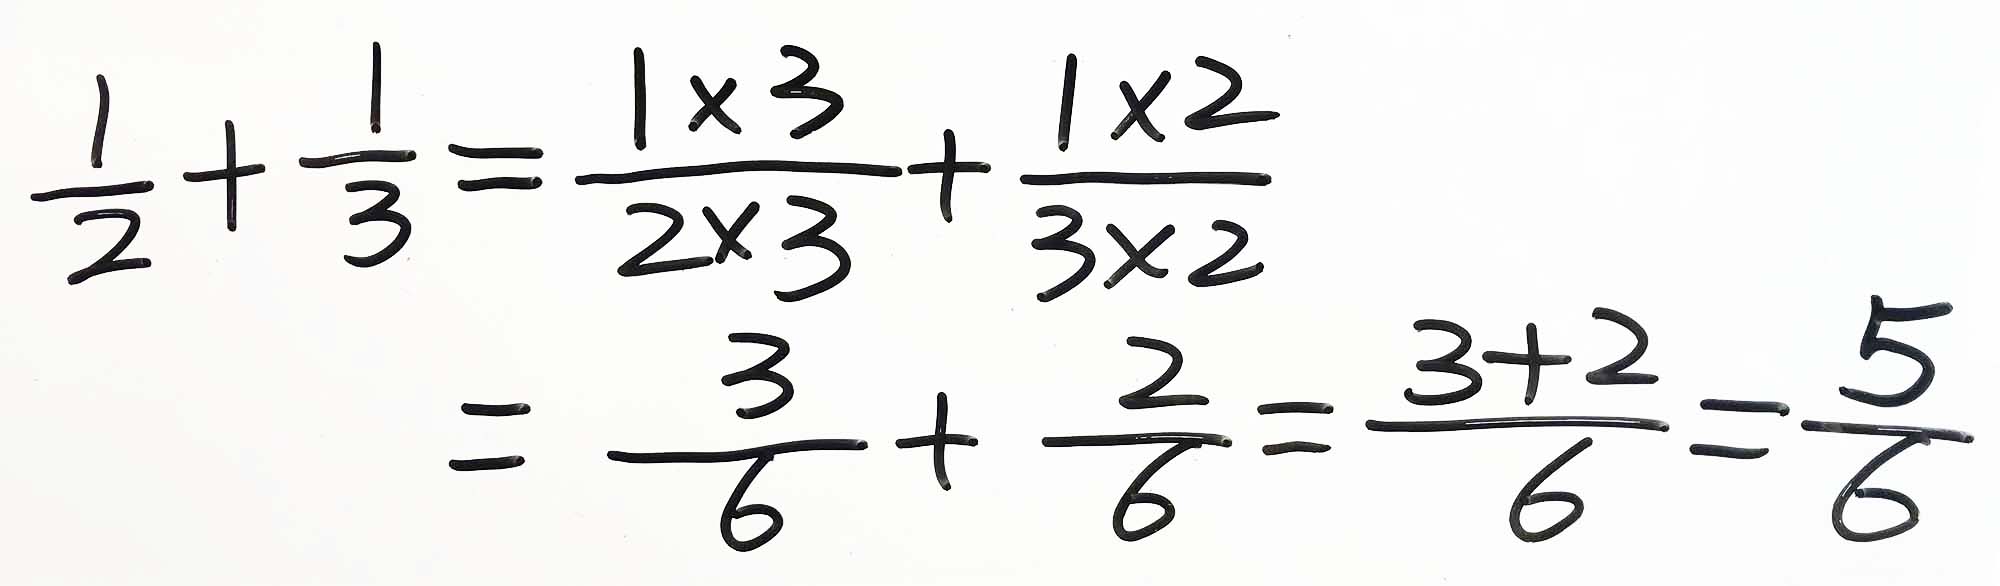 1/2 + 1/3 = (1×3)/(2×3) + (1×2)/(3×2)
= 3/6 + 2/6 = (3+2)/6 = 5/6